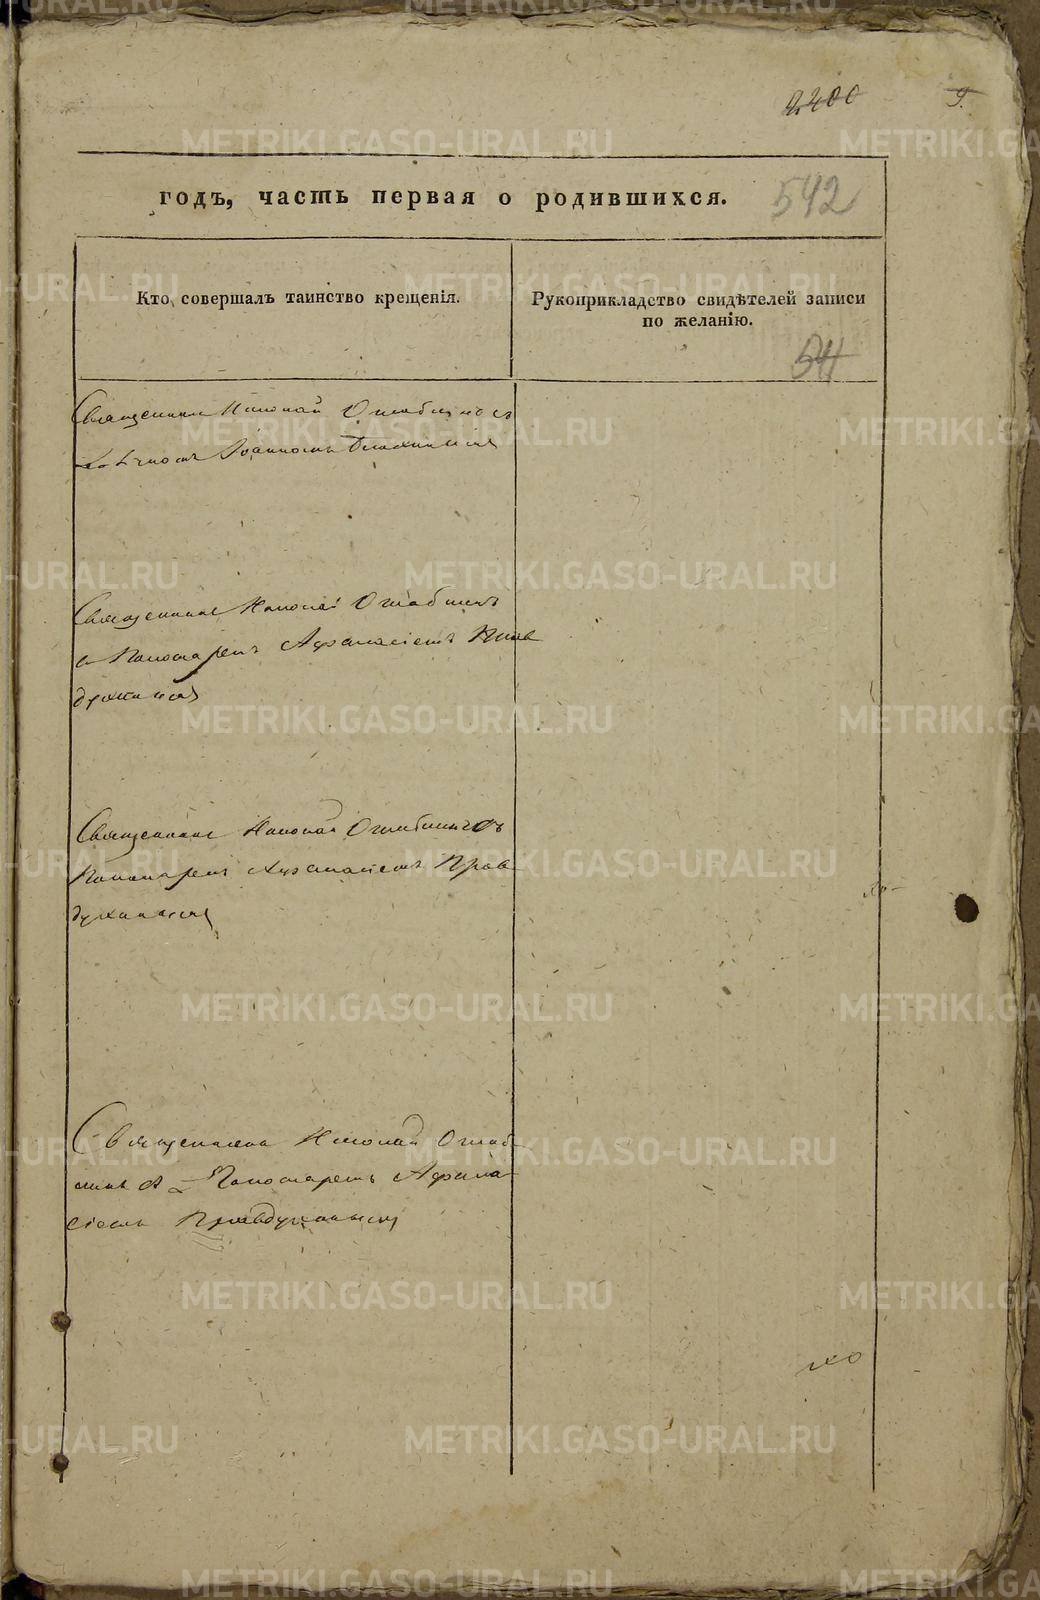 2400
9.
годъ, часть первая о родившихся.
542
Кто совершалъ таинство крещенія.
Рукоприкладство свидѣтелей записи
по желанію.
54
Священникъ Николай съ
Іоанномъ
Священникъ Николай
съ Пономаремъ Афанасіемъ
Священникъ Николай съ
Пономаремъ Афанасіемъ Прав
духинымъ
Священникъ Николай
съ Пономаремъ Афана
сіемъ Правдухинымъ
METRIKI.GASO-URAL.RU